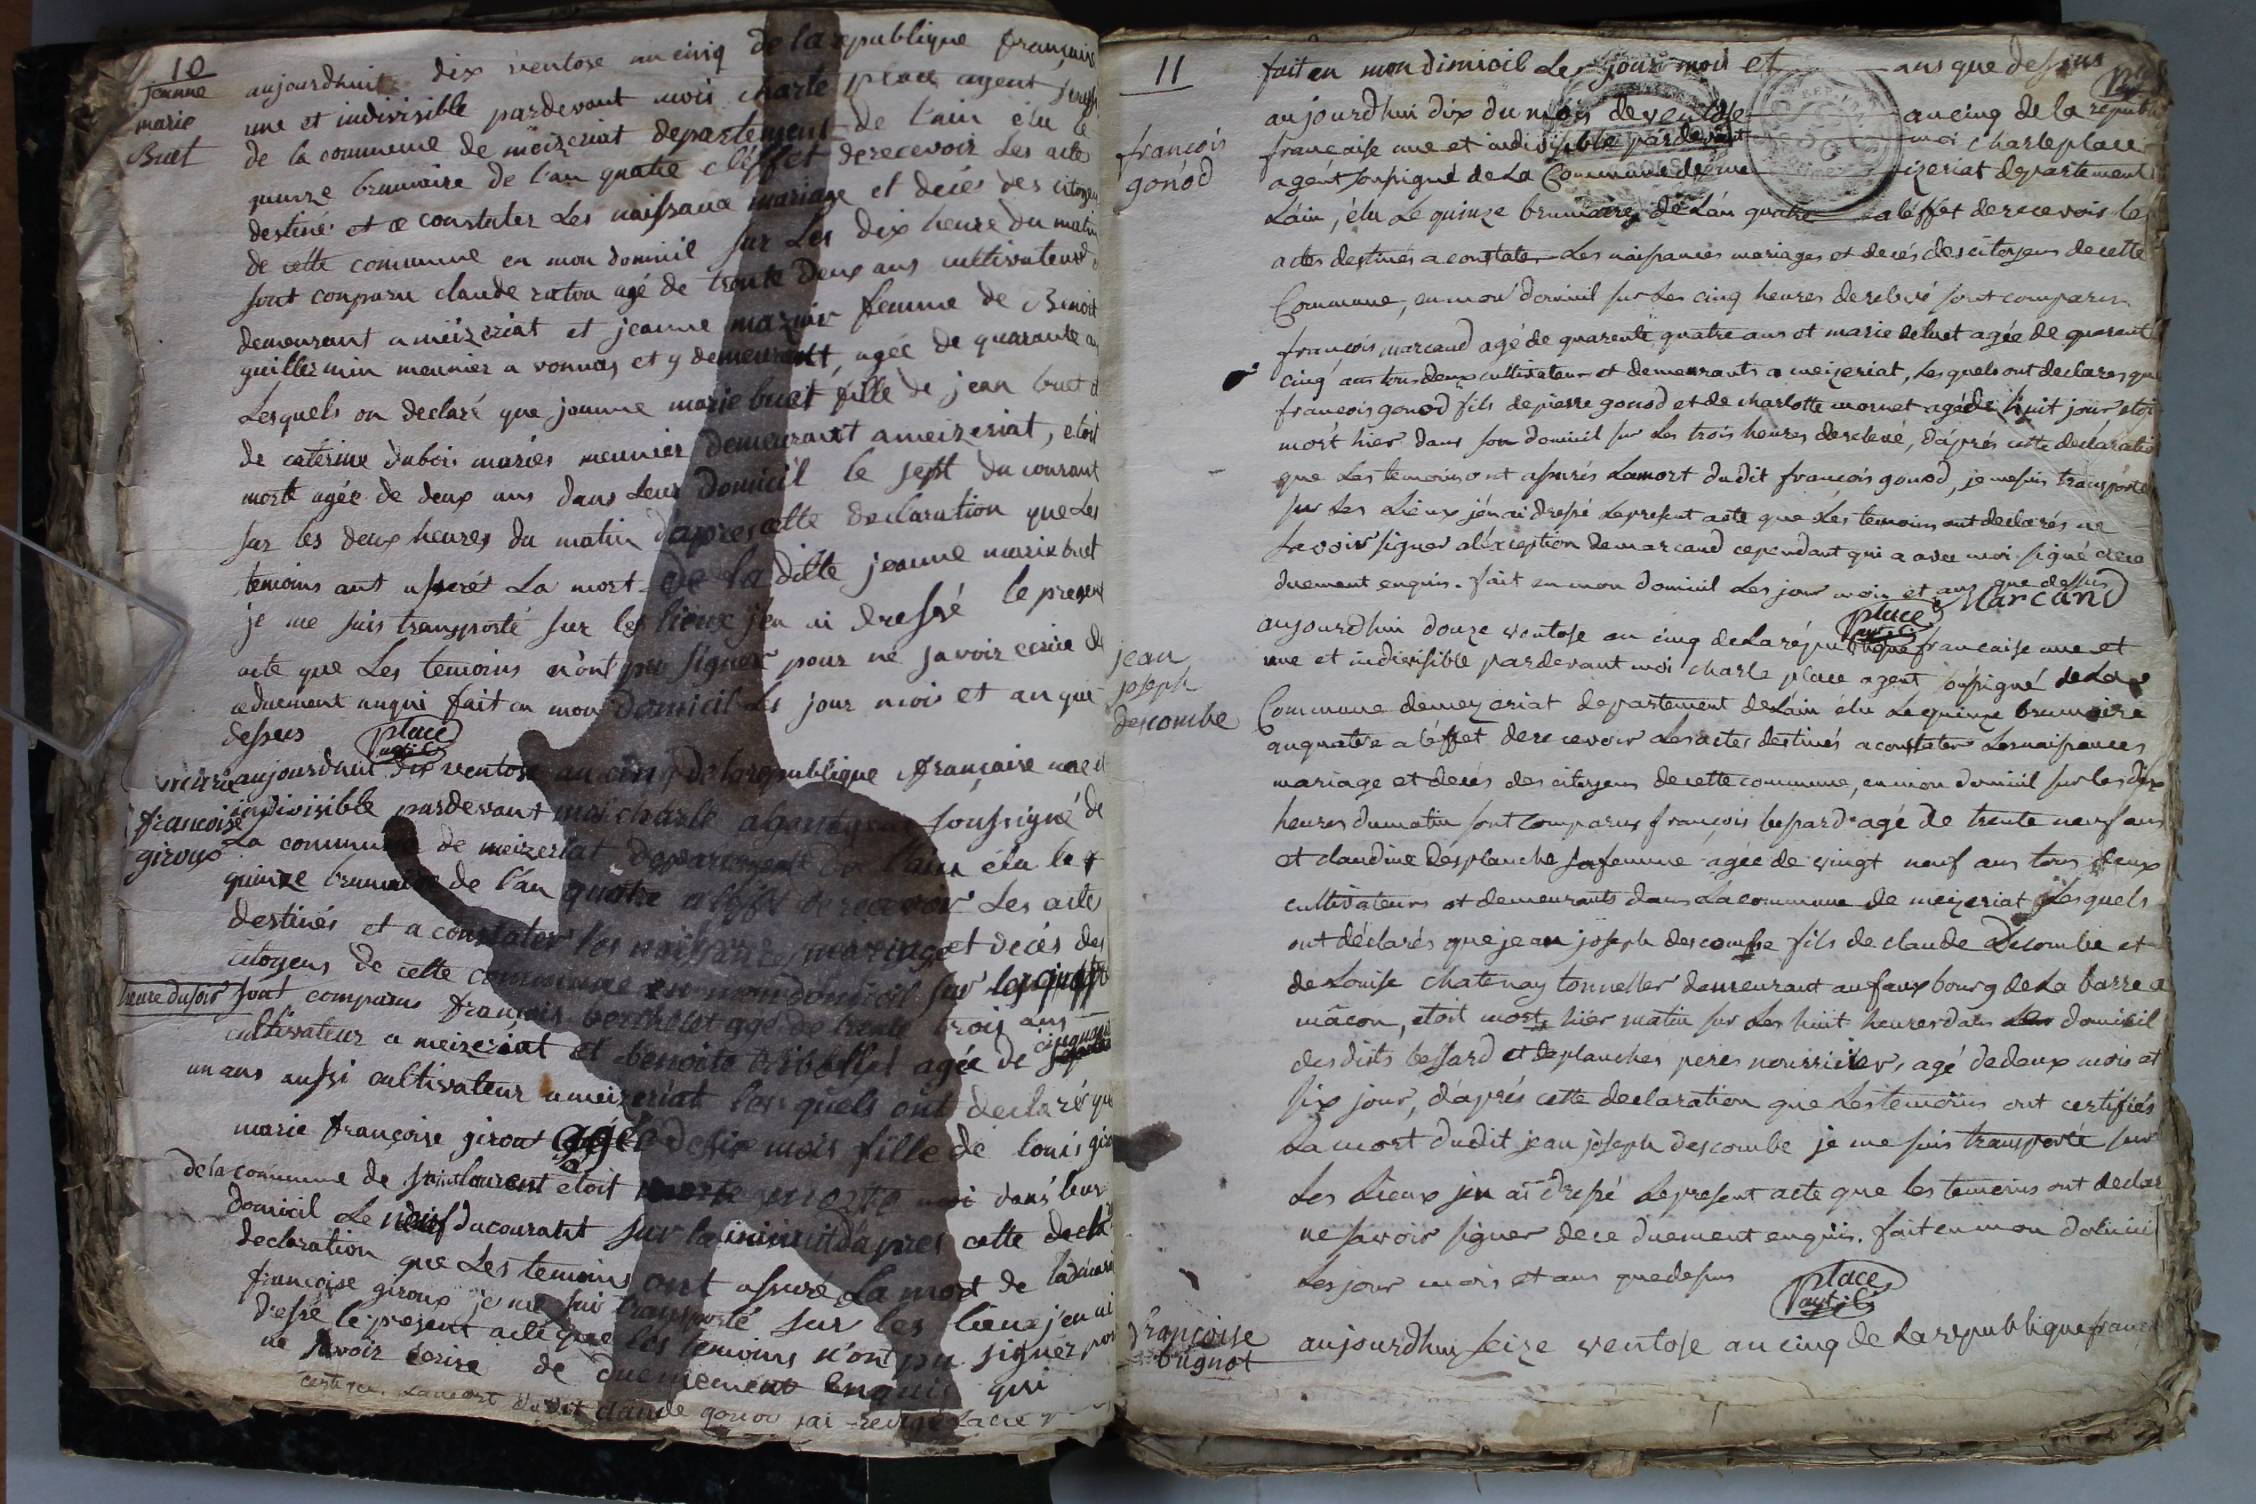 10
jeanne
marie
Buet
aujourdhuit dix ventose an cinq de la republique française
une et indivisible pardevant moi charle place agent soussi
de la commune de meizeriat departement de l'ain élu le
quinze brumaire de l'an quatre a l'effet de recevoir Les acte
destiné et a constater Les naissance mariage et decés des citoyens
de cette commune en mon domicil sur Les dix heure du matin
sont conparu claude raton agé de trante deux ans cultivateur
demeurant a meizeriat et jeanne mazuir femme de Benoit
guillermin meunier a vonnas et y demeurant, agée de quarante an
Lesquels on declaré que jeanne marie buet fille de jean buet et
de caterine dubois mariés meunier demeurant a meizeriat, etoit
morte agée de deux ans dans Leur domicil le sept du courant
sur les deux heures du matin d'apres cette declaration que Les
temoins ont assuré La mort de la ditte jeanne marie buet
je me suis transporté sur les lieux j'en ai dressé le present
acte que Les temoins n'ont pu signer pour ne savoir ecrire de
ce duement enqui fait en mon domicil Les jour mois et an que
dessus place agt
marie
françoise
giroux
aujourdhuit dix ventose an cinq de la republique française une et
indivisible pardevant moi charle agent soussigné de
La commune de meizeriat departement de l'ain élu le
quinze brumaire de l'an quatre a l'effet de recevoir Les acte
destinés et a constater les naissance mariage et decés des
citoyens de cette commune en mon domicil sur les
heure du soir sont comparus françois berthelet agé de trente trois ans
cultivateur a meizeriat et benoite agée de cinquante
un ans aussi cultivateur a meizeriat les quels ont declaré que
marie françoise girout agée de six mois fille de louis giro
de la commune de saint laurent etoit morte dans leur
domicil Le neuf du courant sur la minuit d'apres cette
declaration que Les temoins ont assuré La mort de ladite marie
françoise giroux je me suis transporté sur les lieux j'en ai
dressé le present acte que les temoins n'ont pu signer pour
ne savoir ecrire de ce duement enquis qui
certifié La mort du dit claude gonod jai redigé Lacte
11
fait en mon dimicil Les jour mois et ans que dessus
françois
gonod
aujourdhui dix du mois de ventose an cinq de la republi
francaise une et indivisible pardevant moi charle place
agent soussigné de La Commune de meizeriat departement
L'ain, élu Le quinze brumaire de L'an quatre a l'effet de recevoir les
actes destinés a constater Les naissances mariages et decés des citoyens de cette
Commune, en mon domicil sur Les cinq heures de relevé sont comparus
françois marcaud agé de quarente quatre ans et marie agée de quarent
cinq ans tous deux cultivateur et demeurants a meizeriat, Les quels ont declares que
francois gonod fils de pierre gonod et de charlotte mornet agé de huit jour etoit
mort hier dans son domicil sur Les trois heures de relevé, d'aprés cette declaratio
que Les temoins ont assurés La mort du dit françois gonod, je me suis transporté
sur Les Lieux j'en ai dressé Le present acte que Les temoins ont declarés ne
savoir signer a l'exception de marcaud cependant qui a avec moi signé de ce
duement enquis. fait en mon domicil Les jour mois et ans que dessus
place agt Marcaud
jean
joseph
descombe
aujourdhui douze ventose an cinq de La république francaise une et
une et indivisible pardevant moi charle place agent soussigné de La
Commune de meyzeriat departement de L'ain élu Le quinze brumaire
an quatre a l'effet de recevoir Les actes destinés a constater Les naissances
mariage et decés des citoyens de cette commune, en mon domicil sur les dix
heures du matin sont comparus françois bessard agé de trente neuf ans
et claudine desplanche sa femme agée de vingt neuf ans tous deux
cultivateurs et demeurants dans La commune de meizeriat Les quels
ont déclarés que jean joseph descombe fils de claude Decombe et
de Louise chatenay tonnellier demeurant au faux bourg de La barre a
mâcon, etoit mort hier matin sur Les huit heures dans domicil
des dits bessard et deplanches peres nourricier, agé de deux mois et
six jour, d'aprés cette declaration que Les temoins ont certifiés
La mort du dit jean joseph descombe je me suis transporté sur
Les Lieux jen ai dressé Le present acte que les temoins ont declar
ne savoir signer de ce duement enquis. fait en mon domicil
Les jour mois et ans que dessus place agt
françoise
bugnot
aujourdhui seize ventose an cinq de La republique franç